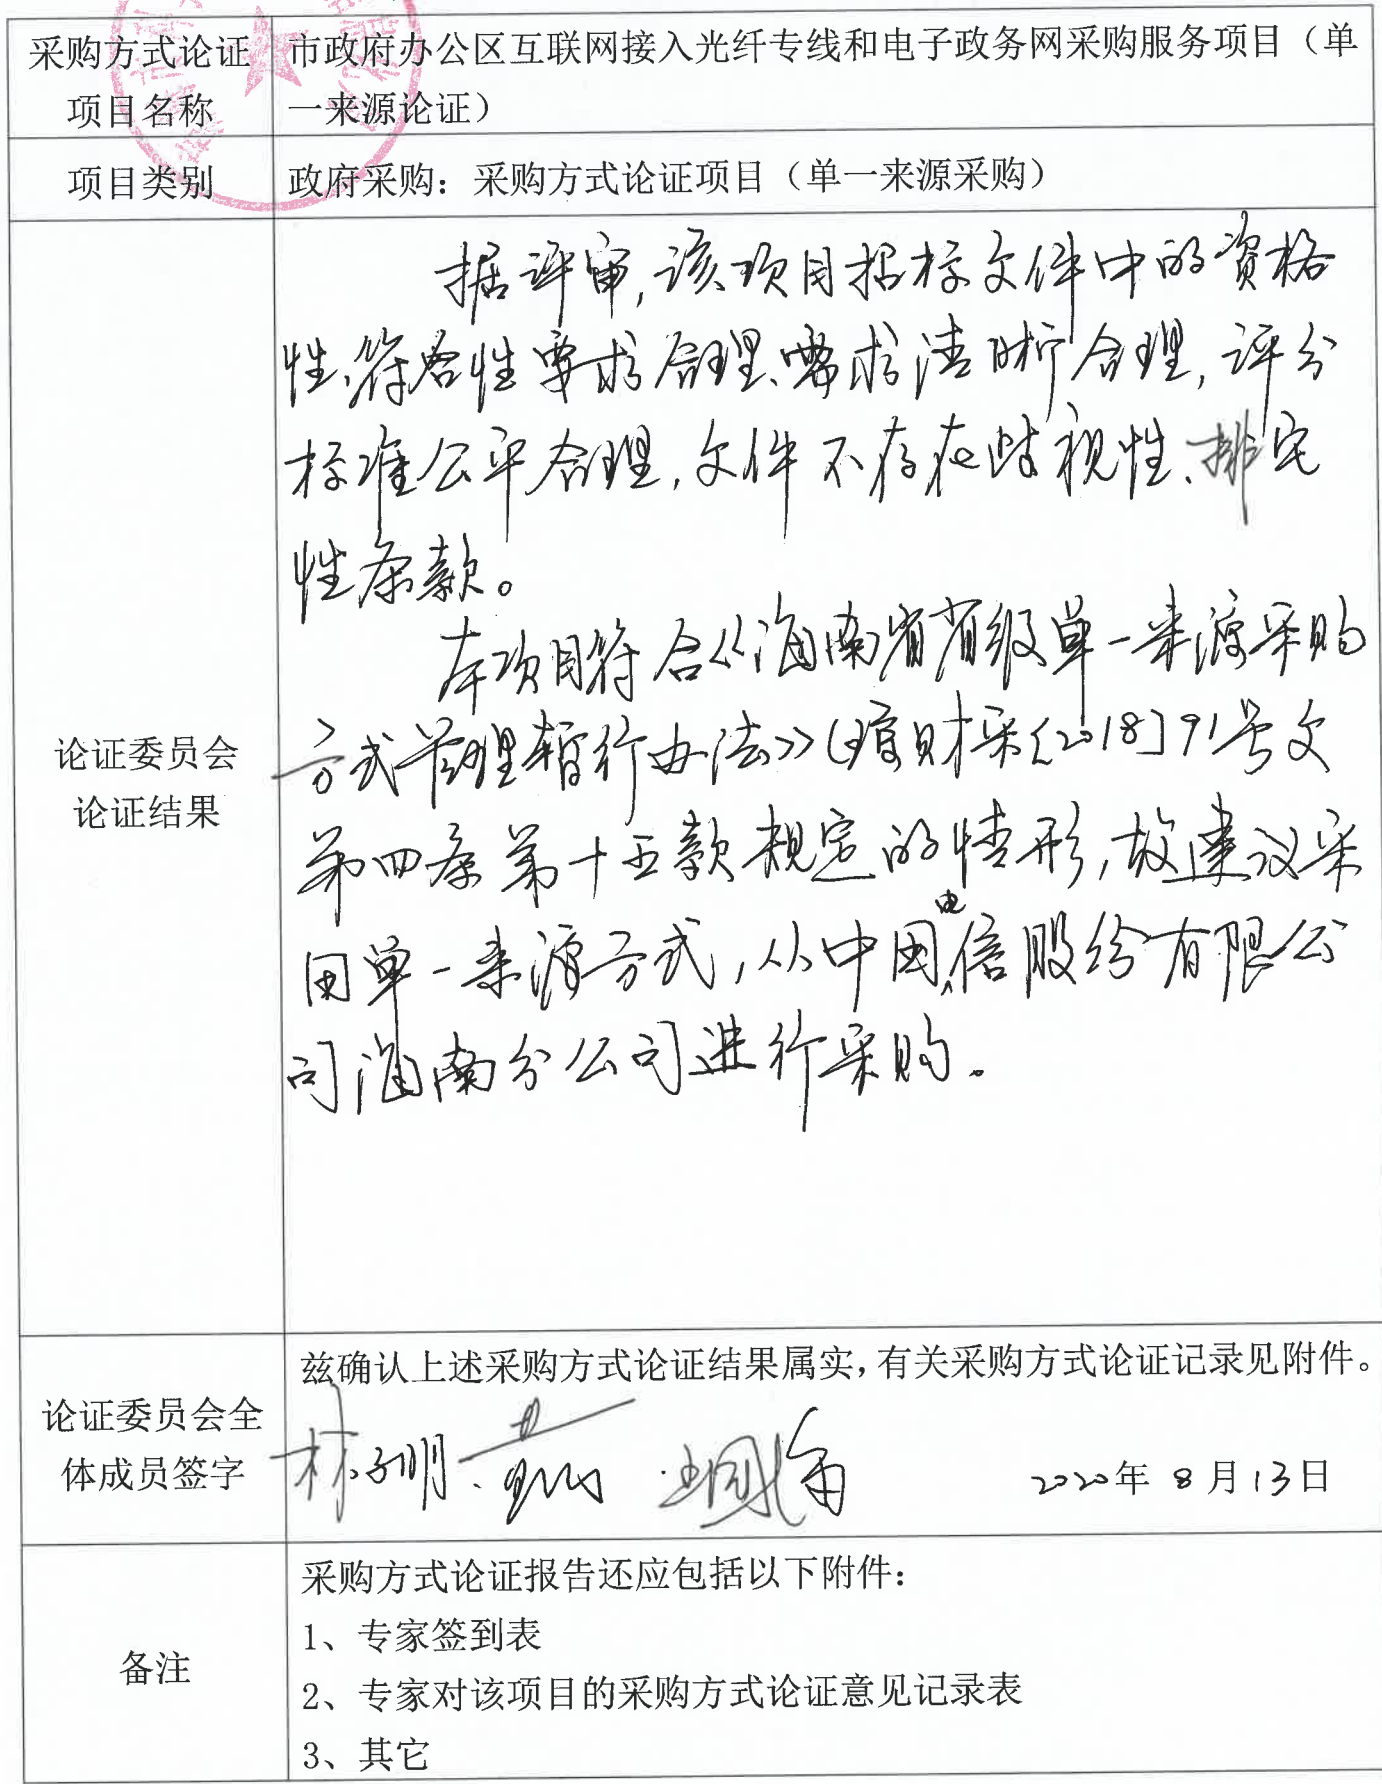 采购方式论证
项目名称
市政府办公区互联网接入光纤专线和电子政务网采购服务项目（单
一来源论证）
项目类别
政府采购：采购方式论证项目（单一来源采购）
论证委员会
论证结果
据评审,该项目招标文件中的资格
性、符合性要求合理、需求清晰合理,评分
标准公平合理,文件不存在歧视性、排它
性条款。
本项目符合《海南省省级单一来源采购
方式管理暂行办法》(琼财采[2018]91号文
第四条第十五款规定的情形,故建议采
用单一来源方式,从中国电信股份有限公
司海南分公司进行采购。
论证委员会全
体成员签字
兹确认上述采购方式论证结果属实,有关采购方式论证记录见附件。
林子明
2020年 8月13日
备注
采购方式论证报告还应包括以下附件：
1、专家签到表
2、专家对该项目的采购方式论证意见记录表
3、其它